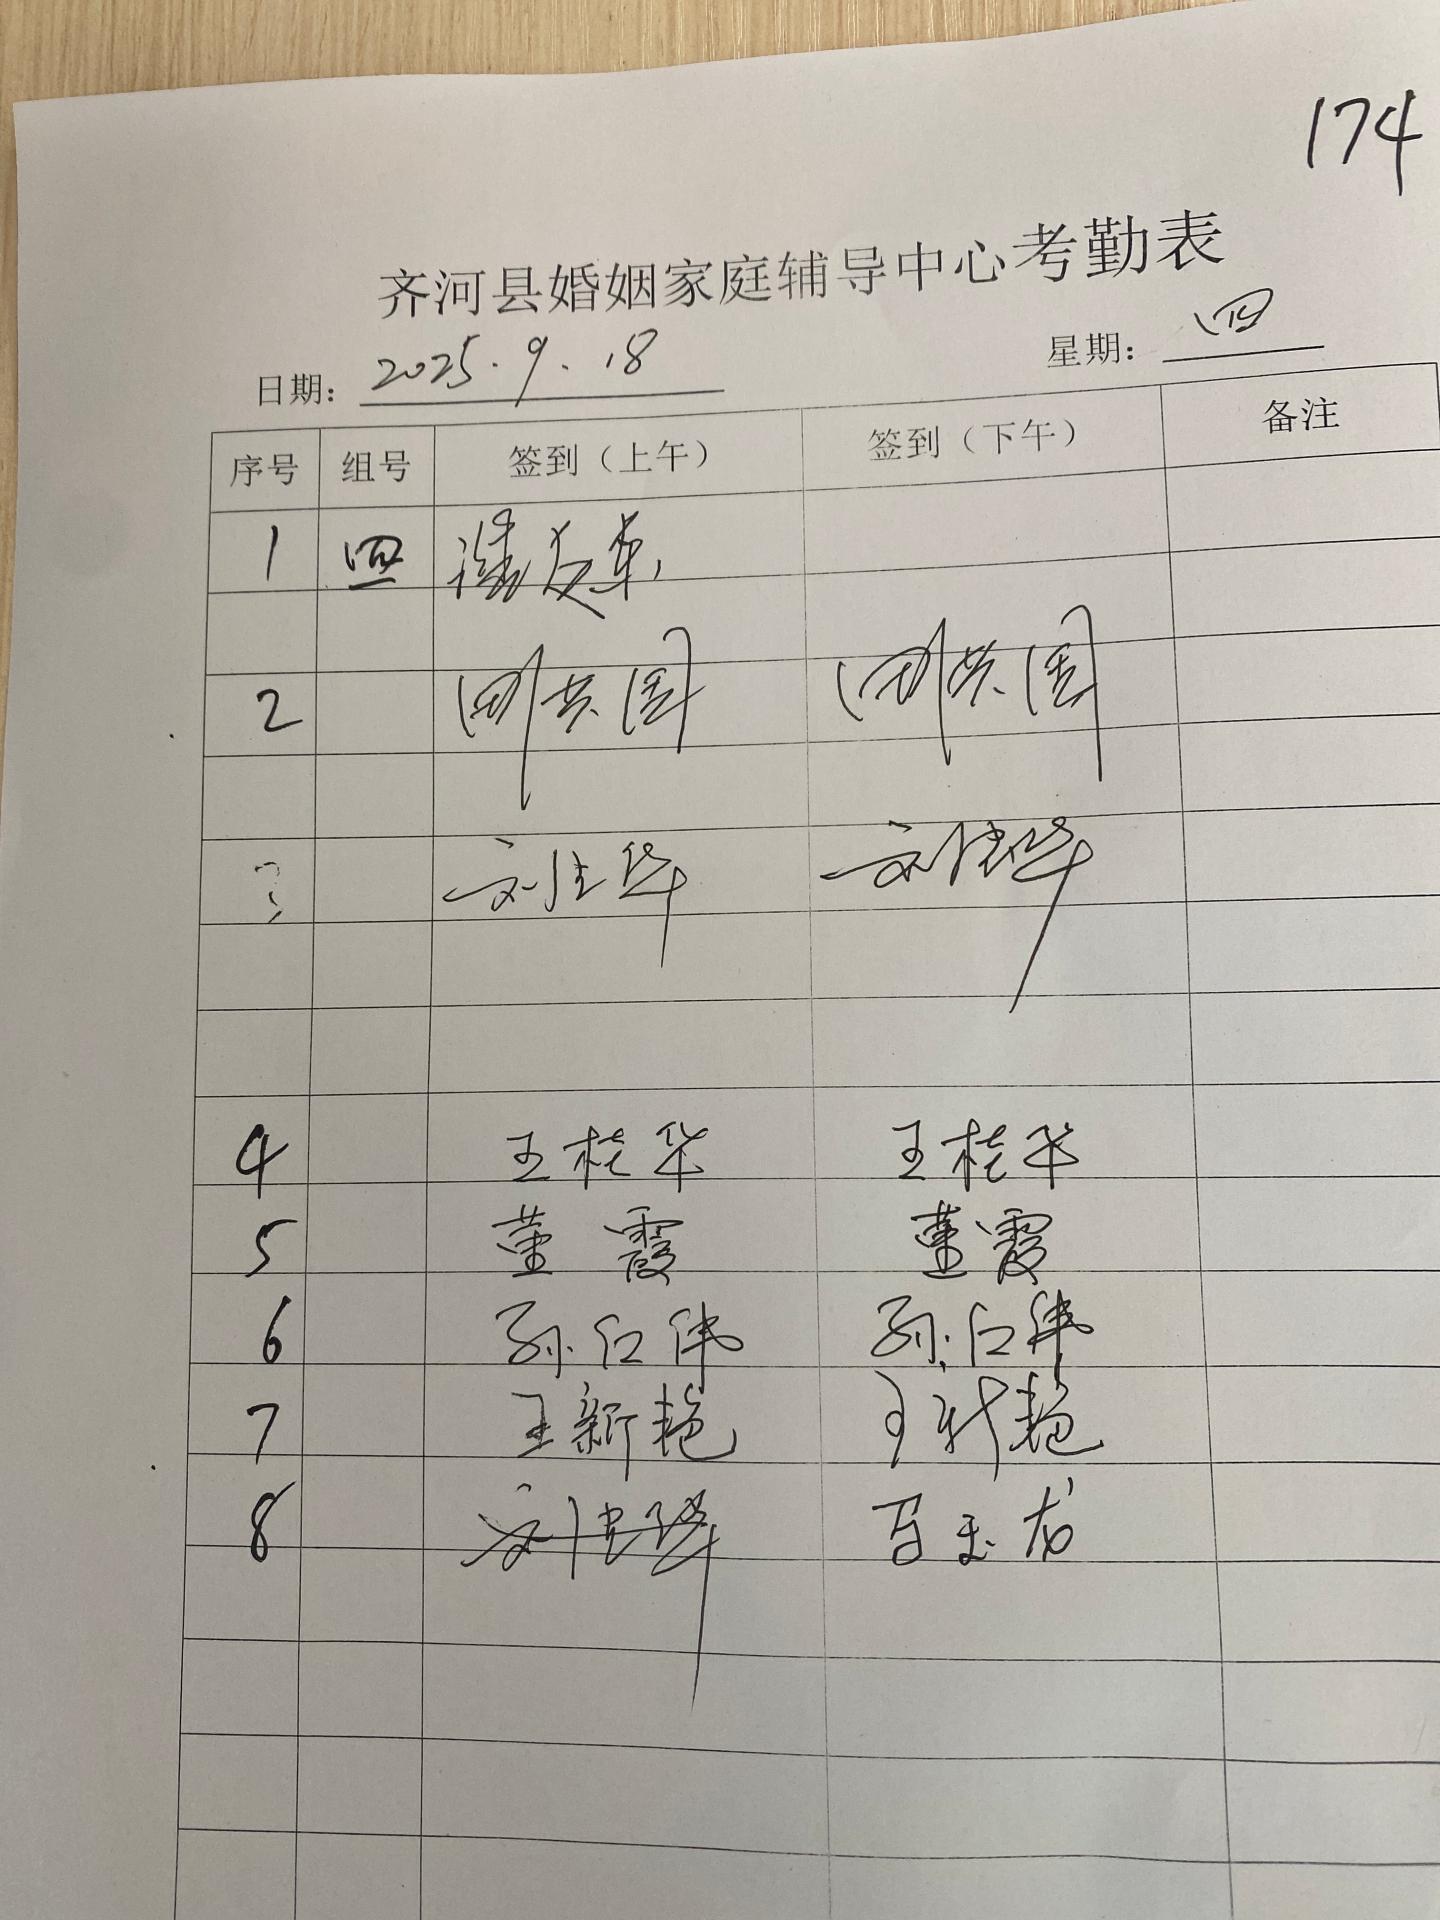 174
齐河县婚姻家庭辅导中心考勤表
日期: 2025.9.18 星期: 四
序号 组号 签到（上午） 签到（下午） 备注
1 四
2
3 刘佳华 刘佳华
4 王桂华 王桂华
5 董霞 董霞
6 孙红伟 孙红伟
7 王新艳 王新艳
8 马玉龙